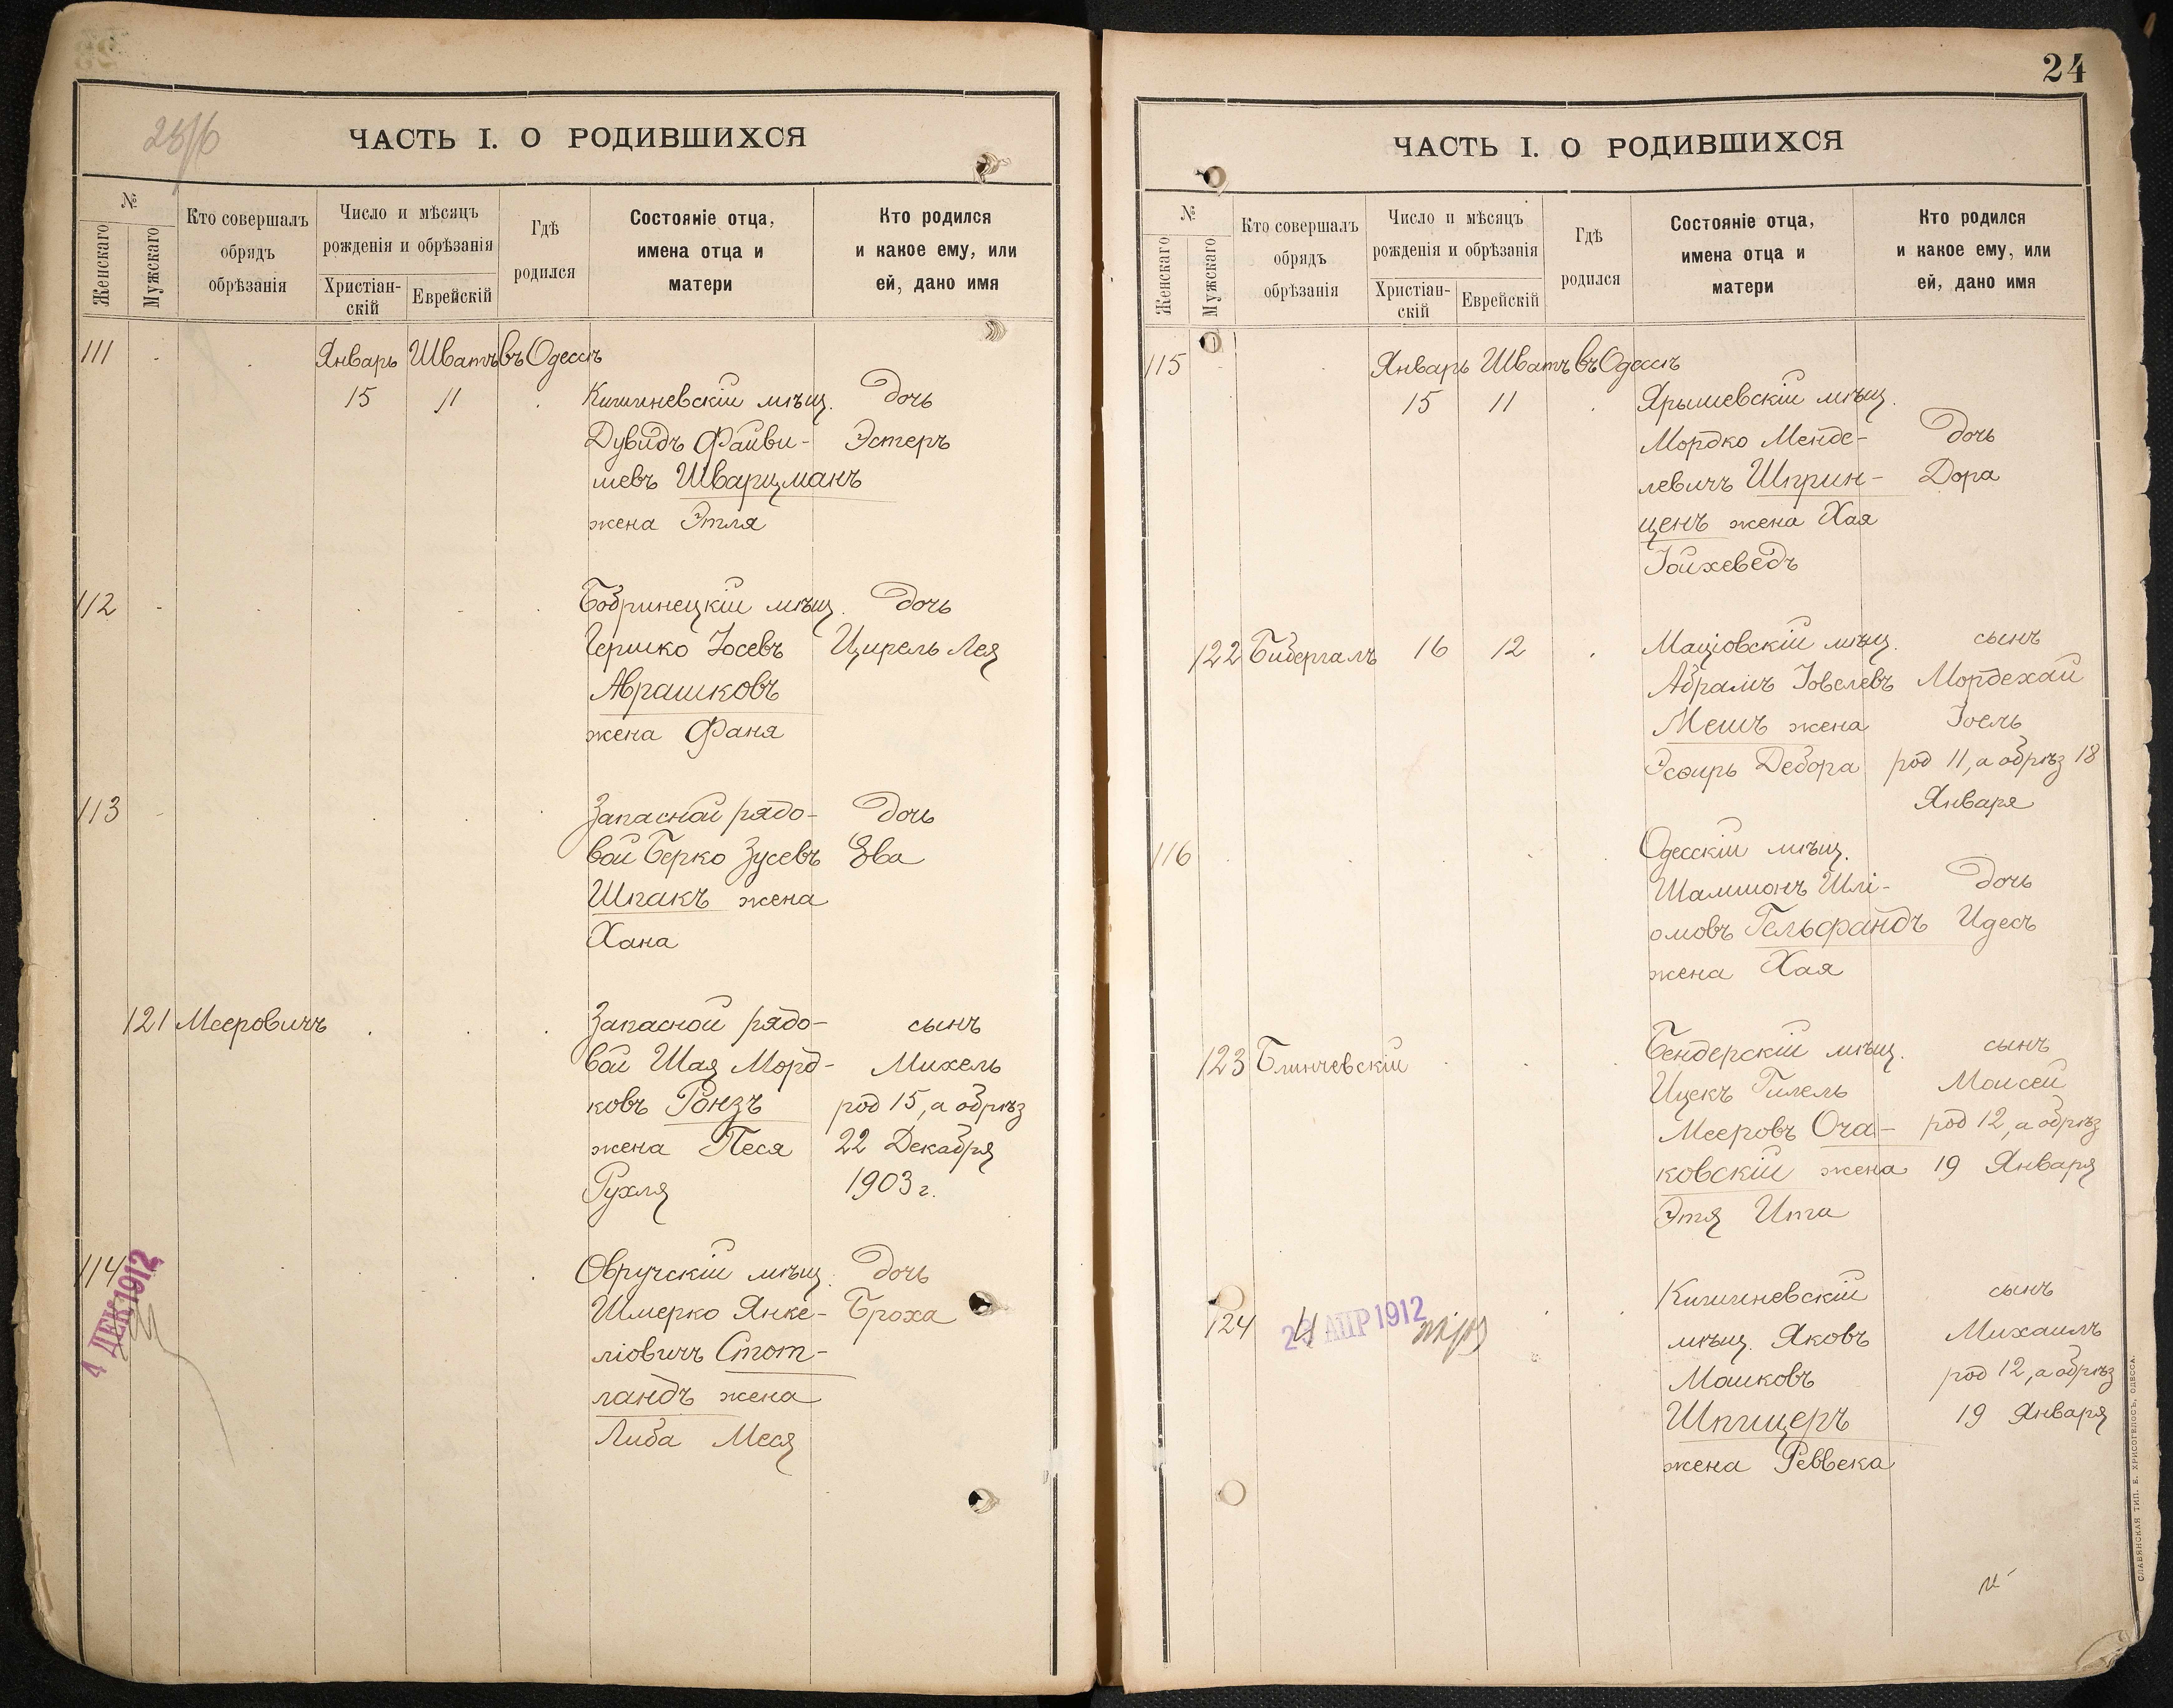 ЧАСТЬ I. О РОДИВШИХСЯ
№
Женскаго
Мужскаго
Кто совершалъ
обрядъ
обрѣзанія
Число и мѣсяцъ
рожденія и обрѣзанія
Христіан-
скій
Еврейскій
Гдѣ
родился
Состояніе отца,
имена отца и
матери
Кто родился
и какое ему, или
ей, дано имя
111 Январь Шватъ въ Одессѣ
15 11 Кишиневскій мѣщ. дочь
Дувидъ Файви- Эстеръ
шевъ Шварцманъ
жена Этля
112 Бобринецкій мѣщ. дочь
Гершко Іосевъ Цирель Лея
Аврашковъ
жена Фаня
113 Запасной рядо- дочь
вой Берко Зусевъ Ева
Шпакъ жена
Хана
121 Мееровичъ Запасной рядо- сынъ
вой Шая Морд- Михель
ковъ Ронзъ род 15, а обрѣз
жена Песя 22 Декабря
Рухля 1903 г.
114 Овручскій мѣщ. дочь
4 ДЕК 1912
Шмерко Янке- Броха
ліовичъ Стот-
ландъ жена
Либа Меся
24
ЧАСТЬ I. О РОДИВШИХСЯ
№
Женскаго
Мужскаго
Кто совершалъ
обрядъ
обрѣзанія
Число и мѣсяцъ
рожденія и обрѣзанія
Христіан-
скій
Еврейскій
Гдѣ
родился
Состояніе отца,
имена отца и
матери
Кто родился
и какое ему, или
ей, дано имя
115 Январь Шватъ въ Одессѣ
15 11 Ярышевскій мѣщ.
Мордко Менде- дочь
левичъ Шприн- Дора
ценъ жена Хая
Іойхеведъ
122 Бибергалъ 16 12 Маціовскій мѣщ. сынъ
Абрамъ Іовелевъ Мордехай
Мешъ жена Іоель
Эсѳирь Дебора род 11, а обрѣз 18
Января
116 Одесскій мѣщ.
Шамшонъ Шлі- дочь
омовъ Гельфандъ Идесъ
жена Хая
123 Блинчевскій Бендерскій мѣщ. сынъ
Ицекъ Гилель Моисей
Мееровъ Оча- род 12, а обрѣз
ковскій жена 19 Января
Этя Ита
Кишиневскій сынъ
124 АПР 1912 мѣщ. Яковъ Михаилъ
Мошковъ род 12, а обрѣз
Шпицеръ 19 Января
жена Реввека
СЛАВЯНСКАЯ ТИП. Е. ХРИСОГЕЛОСЪ, ОДЕССА.